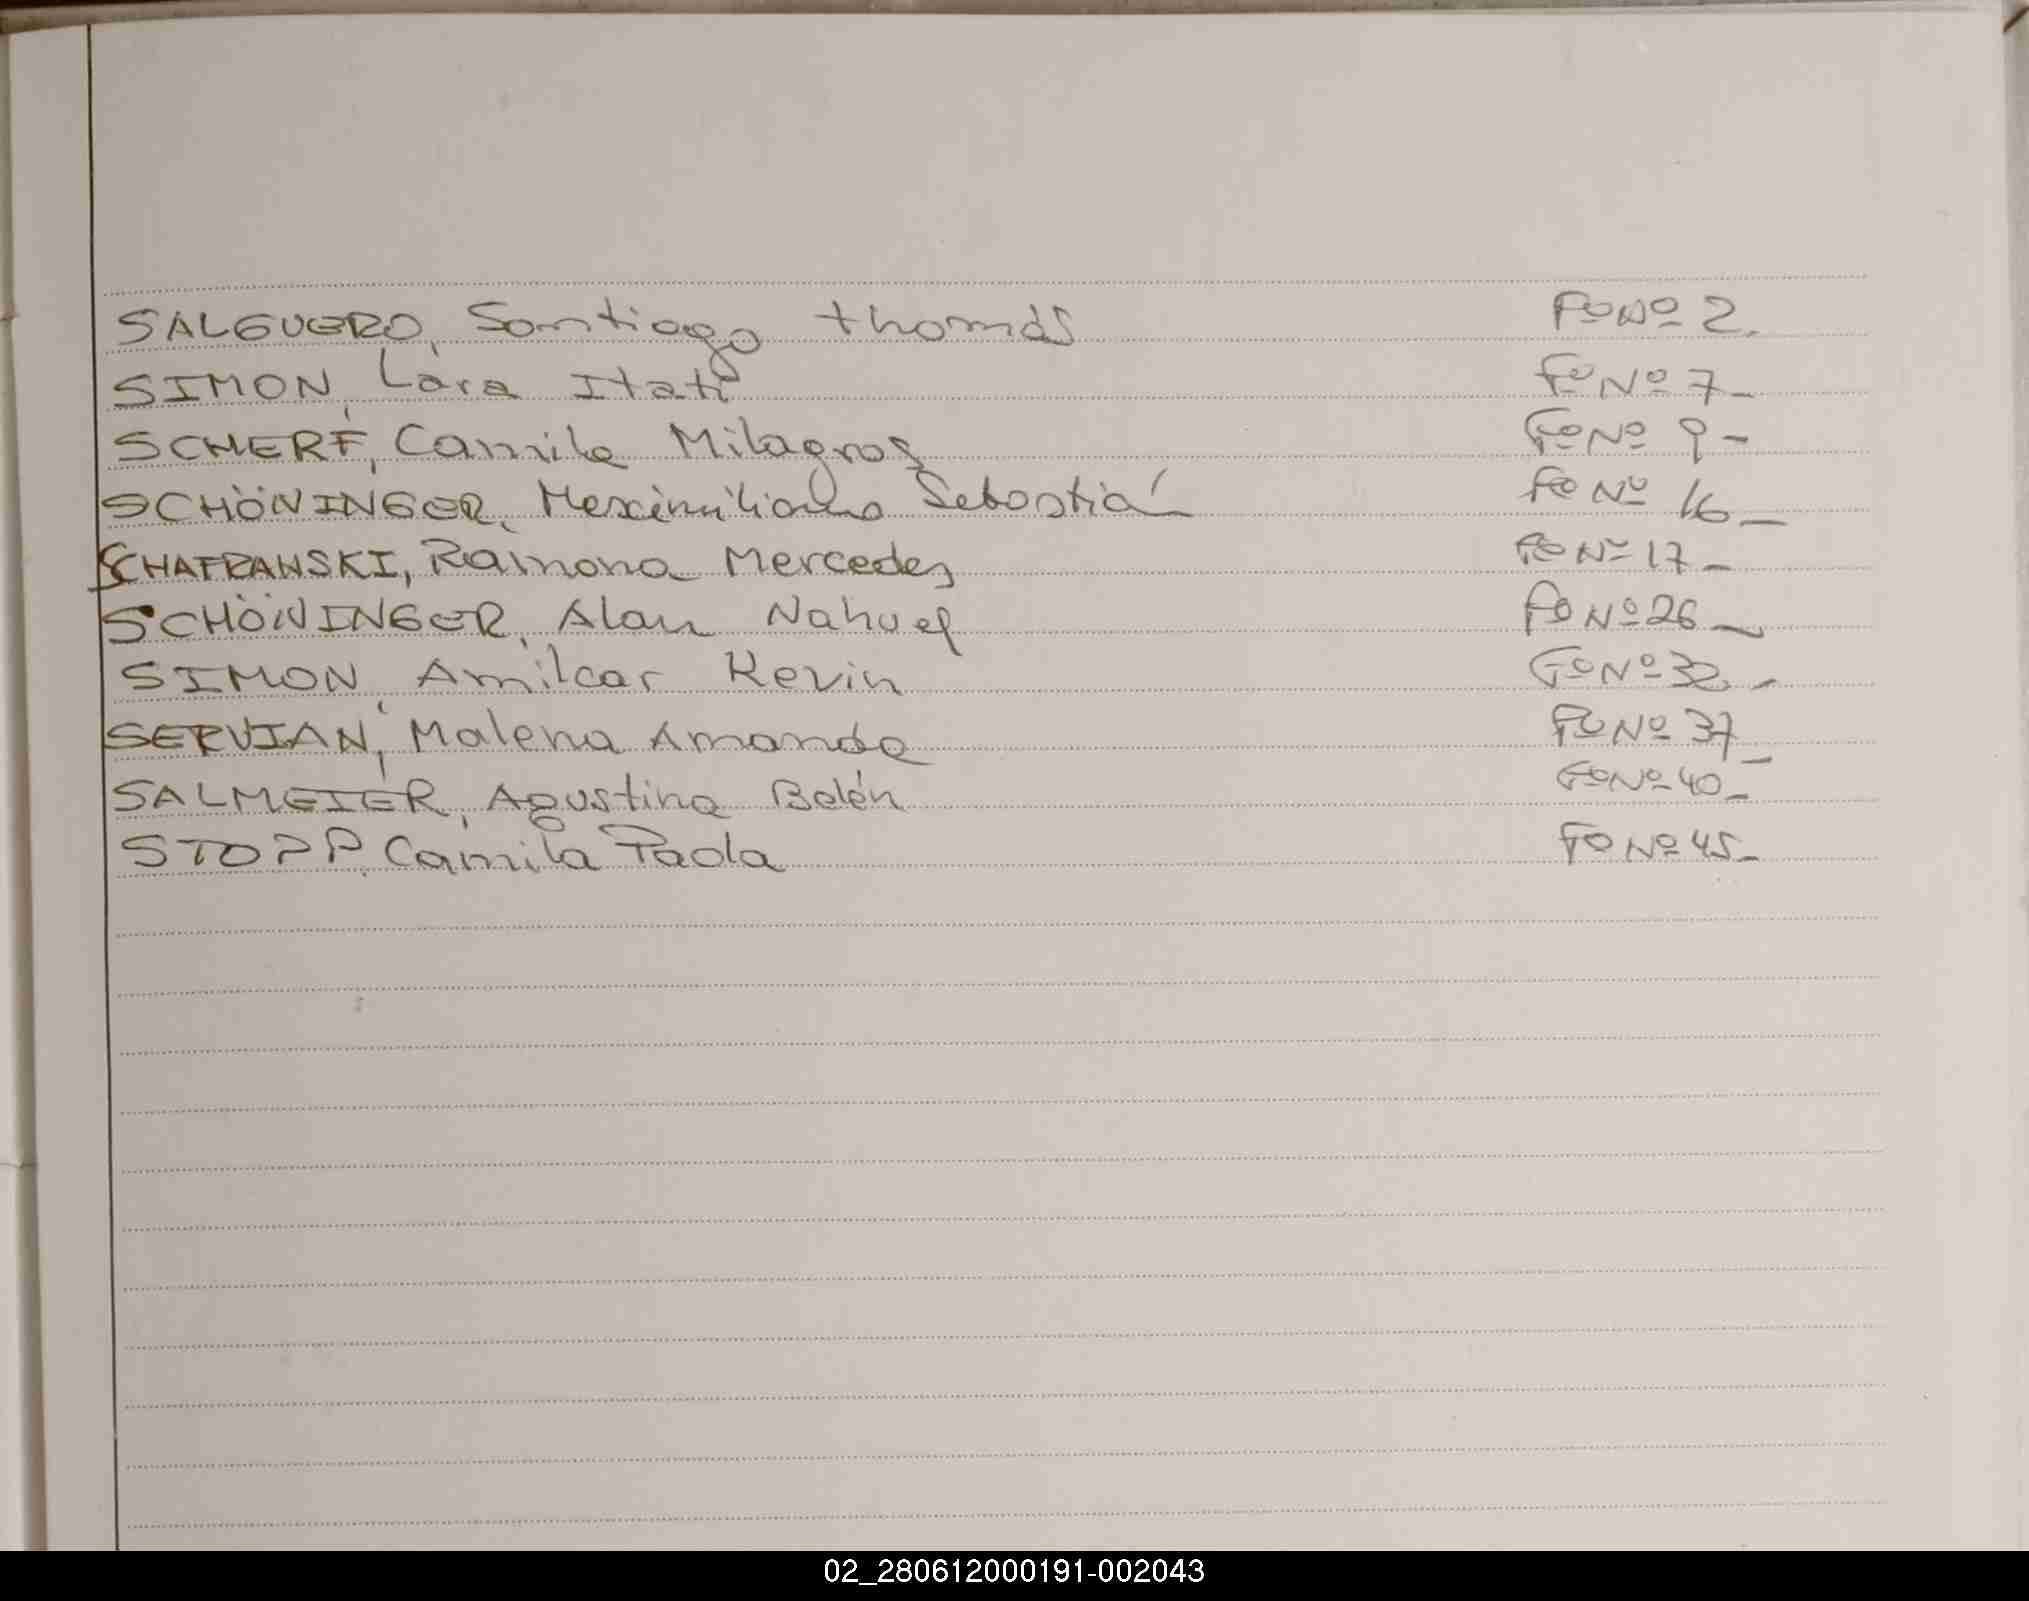 SALGUERO, Santiago Thomás Fº Nº 2.
SIMON, Lara Itatí Fº Nº 7-
SCHERF, Camila Milagros Fº Nº 9-
SCHÖNINGER, Maximiliano Sebastiá Fº Nº 16-
SCHAFRANSKI, Ramona Mercedes Fº Nº 17-
SCHÖNINGER, Alan Nahuel Fº Nº 26-
SIMON, Amilcar Kevin Fº Nº 32-
SERVIAN, Malena Amanda Fº Nº 37-
SALMEIER, Agustina Belén Fº Nº 40-
STOPP, Camila Paola Fº Nº 45-
02_280612000191-002043